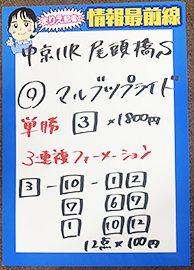 まりえ記者の
情報最前線
中京11R 尾頭橋S
⑨ マルブツプライド
単勝 3 ×1800円
3連複フォーメーション
3 - 10 - 1 2
7 6 7
1 10 12
12点×100円